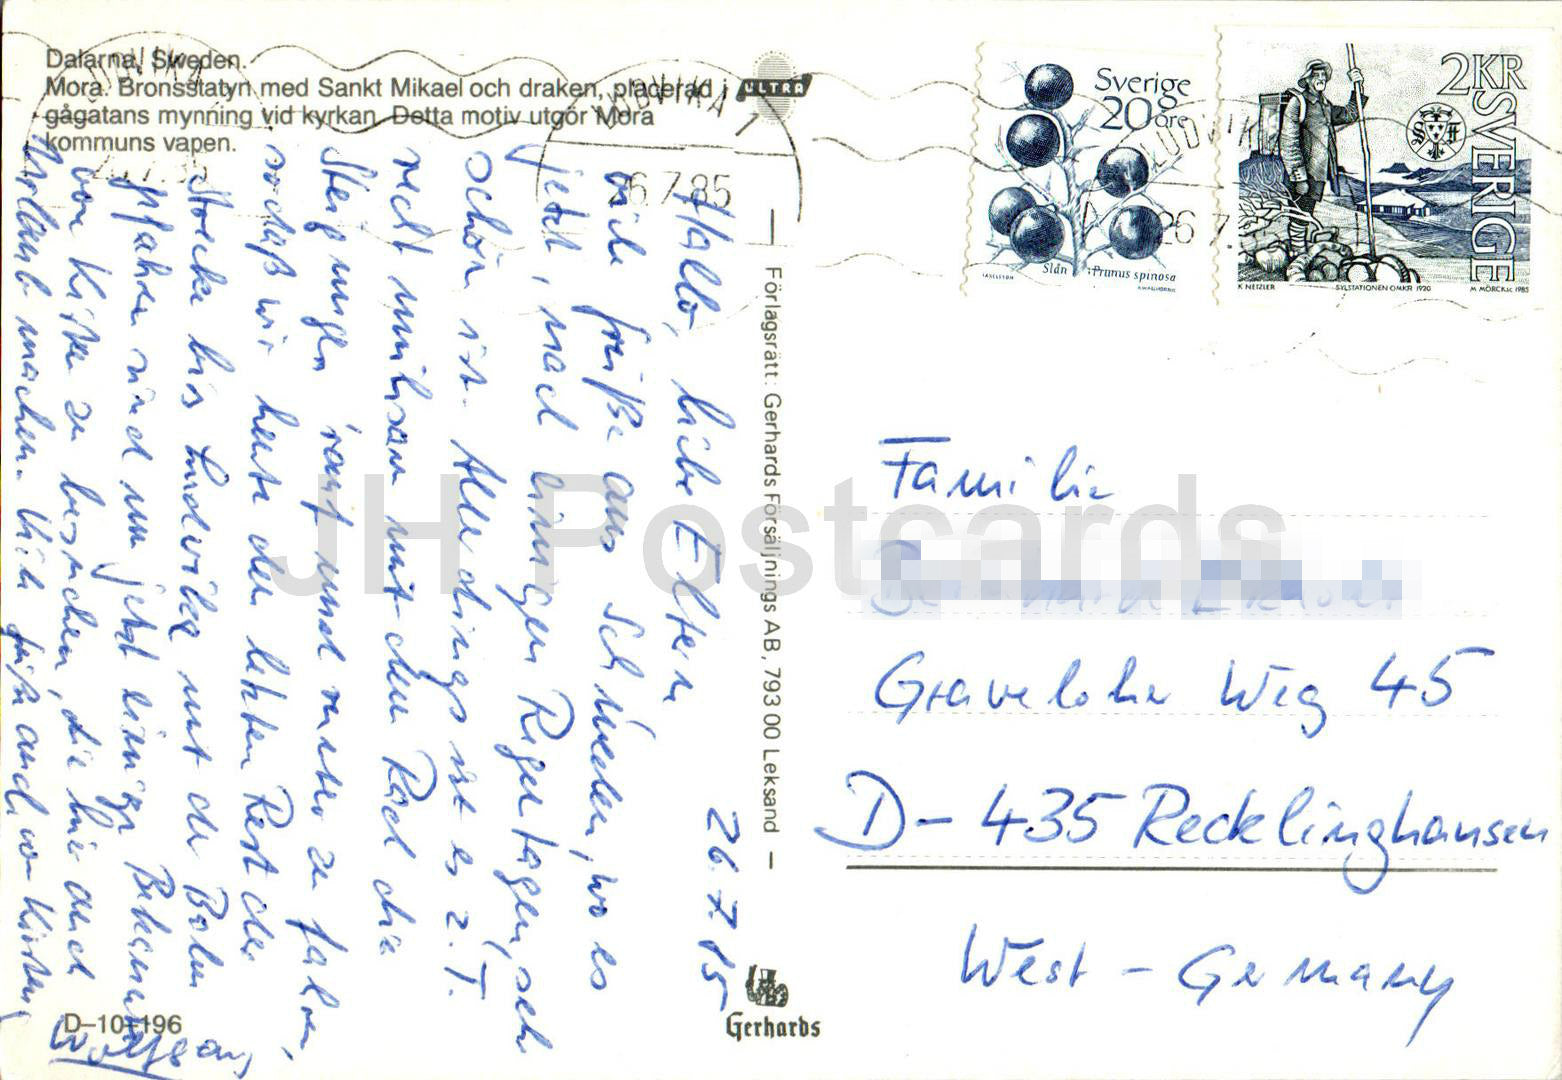 Dalarna, Sweden.
Mora. Bronsstatyn med Sankt Mikael och draken, placerad i
gågatans mynning vid kyrkan. Detta motiv utgör Mora
kommuns vapen.
ULTRA
LUDVIKA
26.7.85
Sverige
20 öre
Slån Prunus spinosa
2KR
SVERIGE
K NEIZLER SYLSTATIONEN OMKR 1920 M MÖRCK sc 1985
26.7.85
Hallo, liebe Eltern
viele Grüße aus Schweden, wo es
jetzt, nach einigen Regentagen, sehr
schön ist. Allerdings ist es z.T.
recht mühsam mit dem Rad die
Steigungen rauf und runter zu fahren,
sodaß wir heute den letzten Rest der
Strecke bis Ludvika mit der Bahn
fahren und um jetzt einige Bekannte
von Kirsten zu besuchen, die hier auch
Urlaub machen. Viele Grüße auch von Kirsten
Wolfgang
D-10-196
Förlagsrätt: Gerhards Försäljnings AB, 793 00 Leksand
Gerhards
Familie
Gravelotter Weg 45
D-435 Recklinghausen
West-Germany
JH Postcards